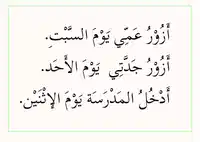 أَزُوْرُ عَمِّي يَوْمَ السَّبْتِ.
أَزُوْرُ جَدَّتِي يَوْمَ الأَحَد.
أَدْخُلُ المَدْرَسَة يَوْمَ الإِثْنَيْن.